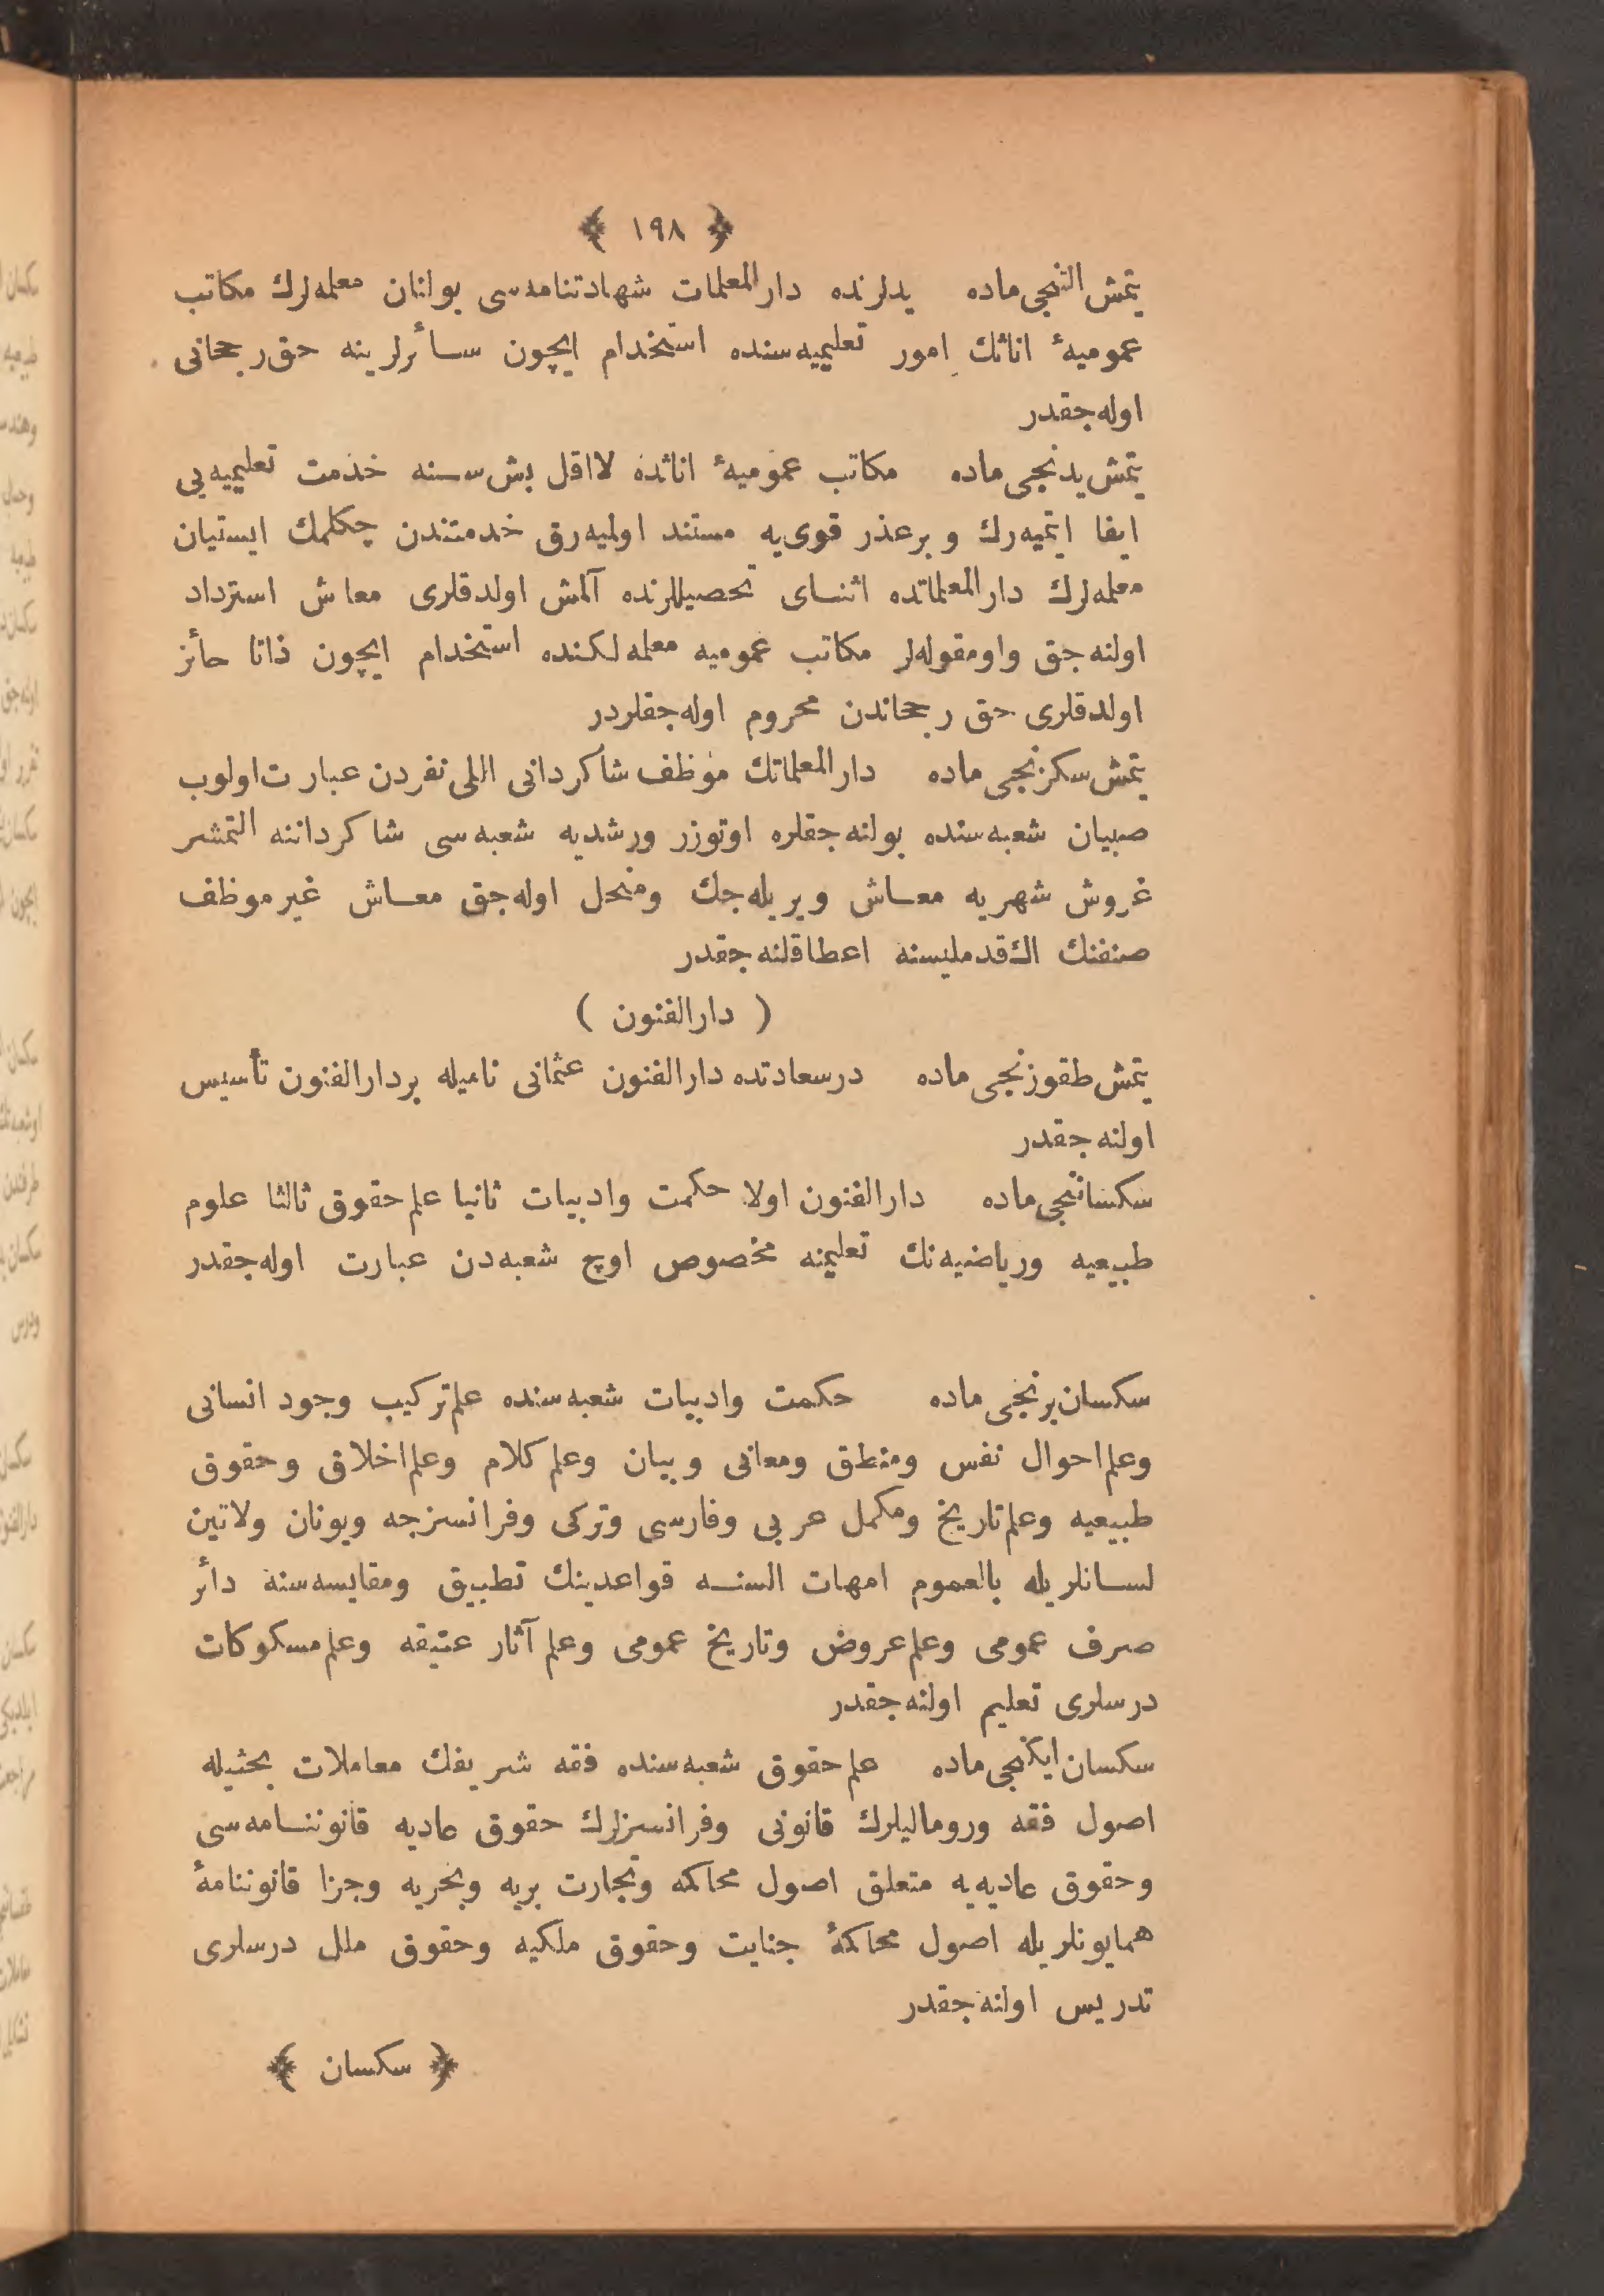 ﴿ ١٩٨ ﴾
يتمش التنجى ماده يدلرنده دار المعلمات شهادتنامه‌سى بولنان معلمه‌لرك مكاتب
عموميهٔ اناثك امور تعليميه‌سنده استخدام ايچون سائرلرينه حق رجحانى
اوله‌جقدر
يتمش يدنجى ماده مكاتب عموميهٔ اناثده لااقل بش سنه خدمت تعليميه‌يى
ايفا ايتميه‌رك و برعذر قوى‌يه مستند اولميه‌رق خدمتندن چكلمك ايستيان
معلمه‌لرك دار المعلماتده اثناى تحصيللرنده آلمش اولدقلرى معاش استرداد
اولنه‌جق واومقوله‌لر مكاتب عموميه معلمه‌لكنده استخدام ايچون ذاتا حائز
اولدقلرى حق رجحاندن محروم اوله‌جقلردر
يتمش سكزنجى ماده دار المعلماتك موظف شاكردانى اللى نفردن عبارت اولوب
صبيان شعبه‌سنده بولنه‌جقلره اوتوزر ورشديه شعبه‌سى شاكرداننه التمشر
غروش شهريه معاش ويريله‌جك ومنحل اوله‌جق معاش غير موظف
صنفنك اك قدمليسنه اعطا قلنه‌جقدر
( دار الفنون )
يتمش طقوزنجى ماده درسعادتده دار الفنون عثمانى ناميله بر دار الفنون تأسيس
اولنه‌جقدر
سكساننجى ماده دار الفنون اولا حكمت وادبيات ثانيا علم حقوق ثالثا علوم
طبيعيه ورياضيه‌نك تعليمنه مخصوص اوچ شعبه‌دن عبارت اوله‌جقدر
سكسان برنجى ماده حكمت وادبيات شعبه‌سنده علم تركيب وجود انسانى
وعلم احوال نفس ومنطق ومعانى وبيان وعلم كلام وعلم اخلاق وحقوق
طبيعيه وعلم تاريخ ومكمل عربى وفارسى وتركى وفرانسزجه ويونان ولاتين
لسانلريله بالعموم امهات السنه قواعدينك تطبيق ومقايسه‌سنه دائر
صرف عمومى وعلم عروض وتاريخ عمومى وعلم آثار عتيقه وعلم مسكوكات
درسلرى تعليم اولنه‌جقدر
سكسان ايكنجى ماده علم حقوق شعبه‌سنده فقه شريفك معاملات بحثيله
اصول فقه وروماليلرك قانونى وفرانسزلرك حقوق عاديه قانوننامه‌سى
وحقوق عاديه‌يه متعلق اصول محاكمه وتجارت بريه وبحريه وجزا قانوننامهٔ
همايونلريله اصول محاكمهٔ جنايت وحقوق ملكيه وحقوق ملل درسلرى
تدريس اولنه‌جقدر
﴿ سكسان ﴾